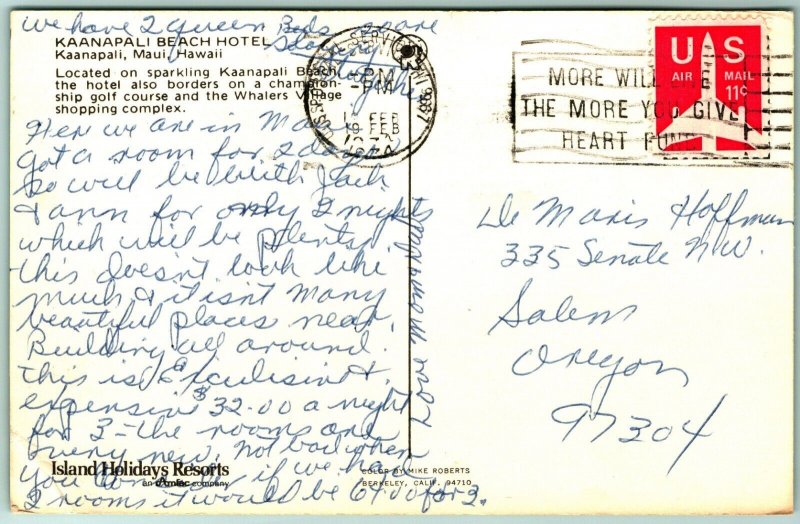 we have 2 queen Beds so are
sleeping
together
KAANAPALI BEACH HOTEL
Kaanapali, Maui, Hawaii
Located on sparkling Kaanapali Beach,
the hotel also borders on a champion-
ship golf course and the Whalers Village
shopping complex.
Here we are in Maui
got a room for 2 days
so will be with Jack
& ann for only 2 nights
which will be plenty.
this doesn't look like
much & it isn't many
beautiful places near.
Building all around.
this is Exclusive &
expensive $32.00 a night
for 3 - the rooms are
very new. not bad when
you consider if we had
2 rooms it would be 64.00 for 2.
Love Mom & Dad
Island Holidays Resorts
an amfac company
COLOR BY MIKE ROBERTS
BERKELEY, CALIF. 94710
PM
19 FEB
MORE WILL LIVE
THE MORE YOU GIVE
HEART FUND
US
AIR MAIL
11¢
De Maris Hoffman
335 Senate N.W.
Salem
Oregon
97304